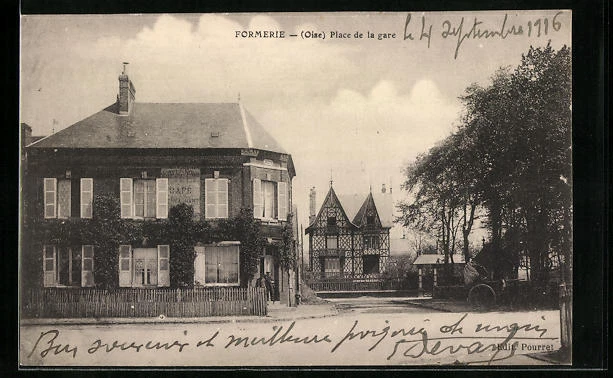 FORMERIE — (Oise) Place de la gare
le 4 Septembre 1916
CAFÉ
Bon souvenir et meilleure poignée de main
Edit. Pourret